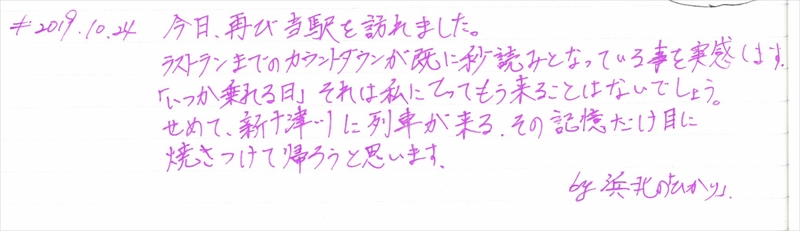 #2019.10.24 今日、再び当駅を訪れました。
ラストランまでのカウントダウンが既に秒読みとなっている事を実感します。
「いつか乗れる日」それは私にとってもう来ることはないでしょう。
せめて、新十津川に列車が来る、その記憶だけ目に
焼きつけて帰ろうと思います。
by 浜北の「ひかり」.